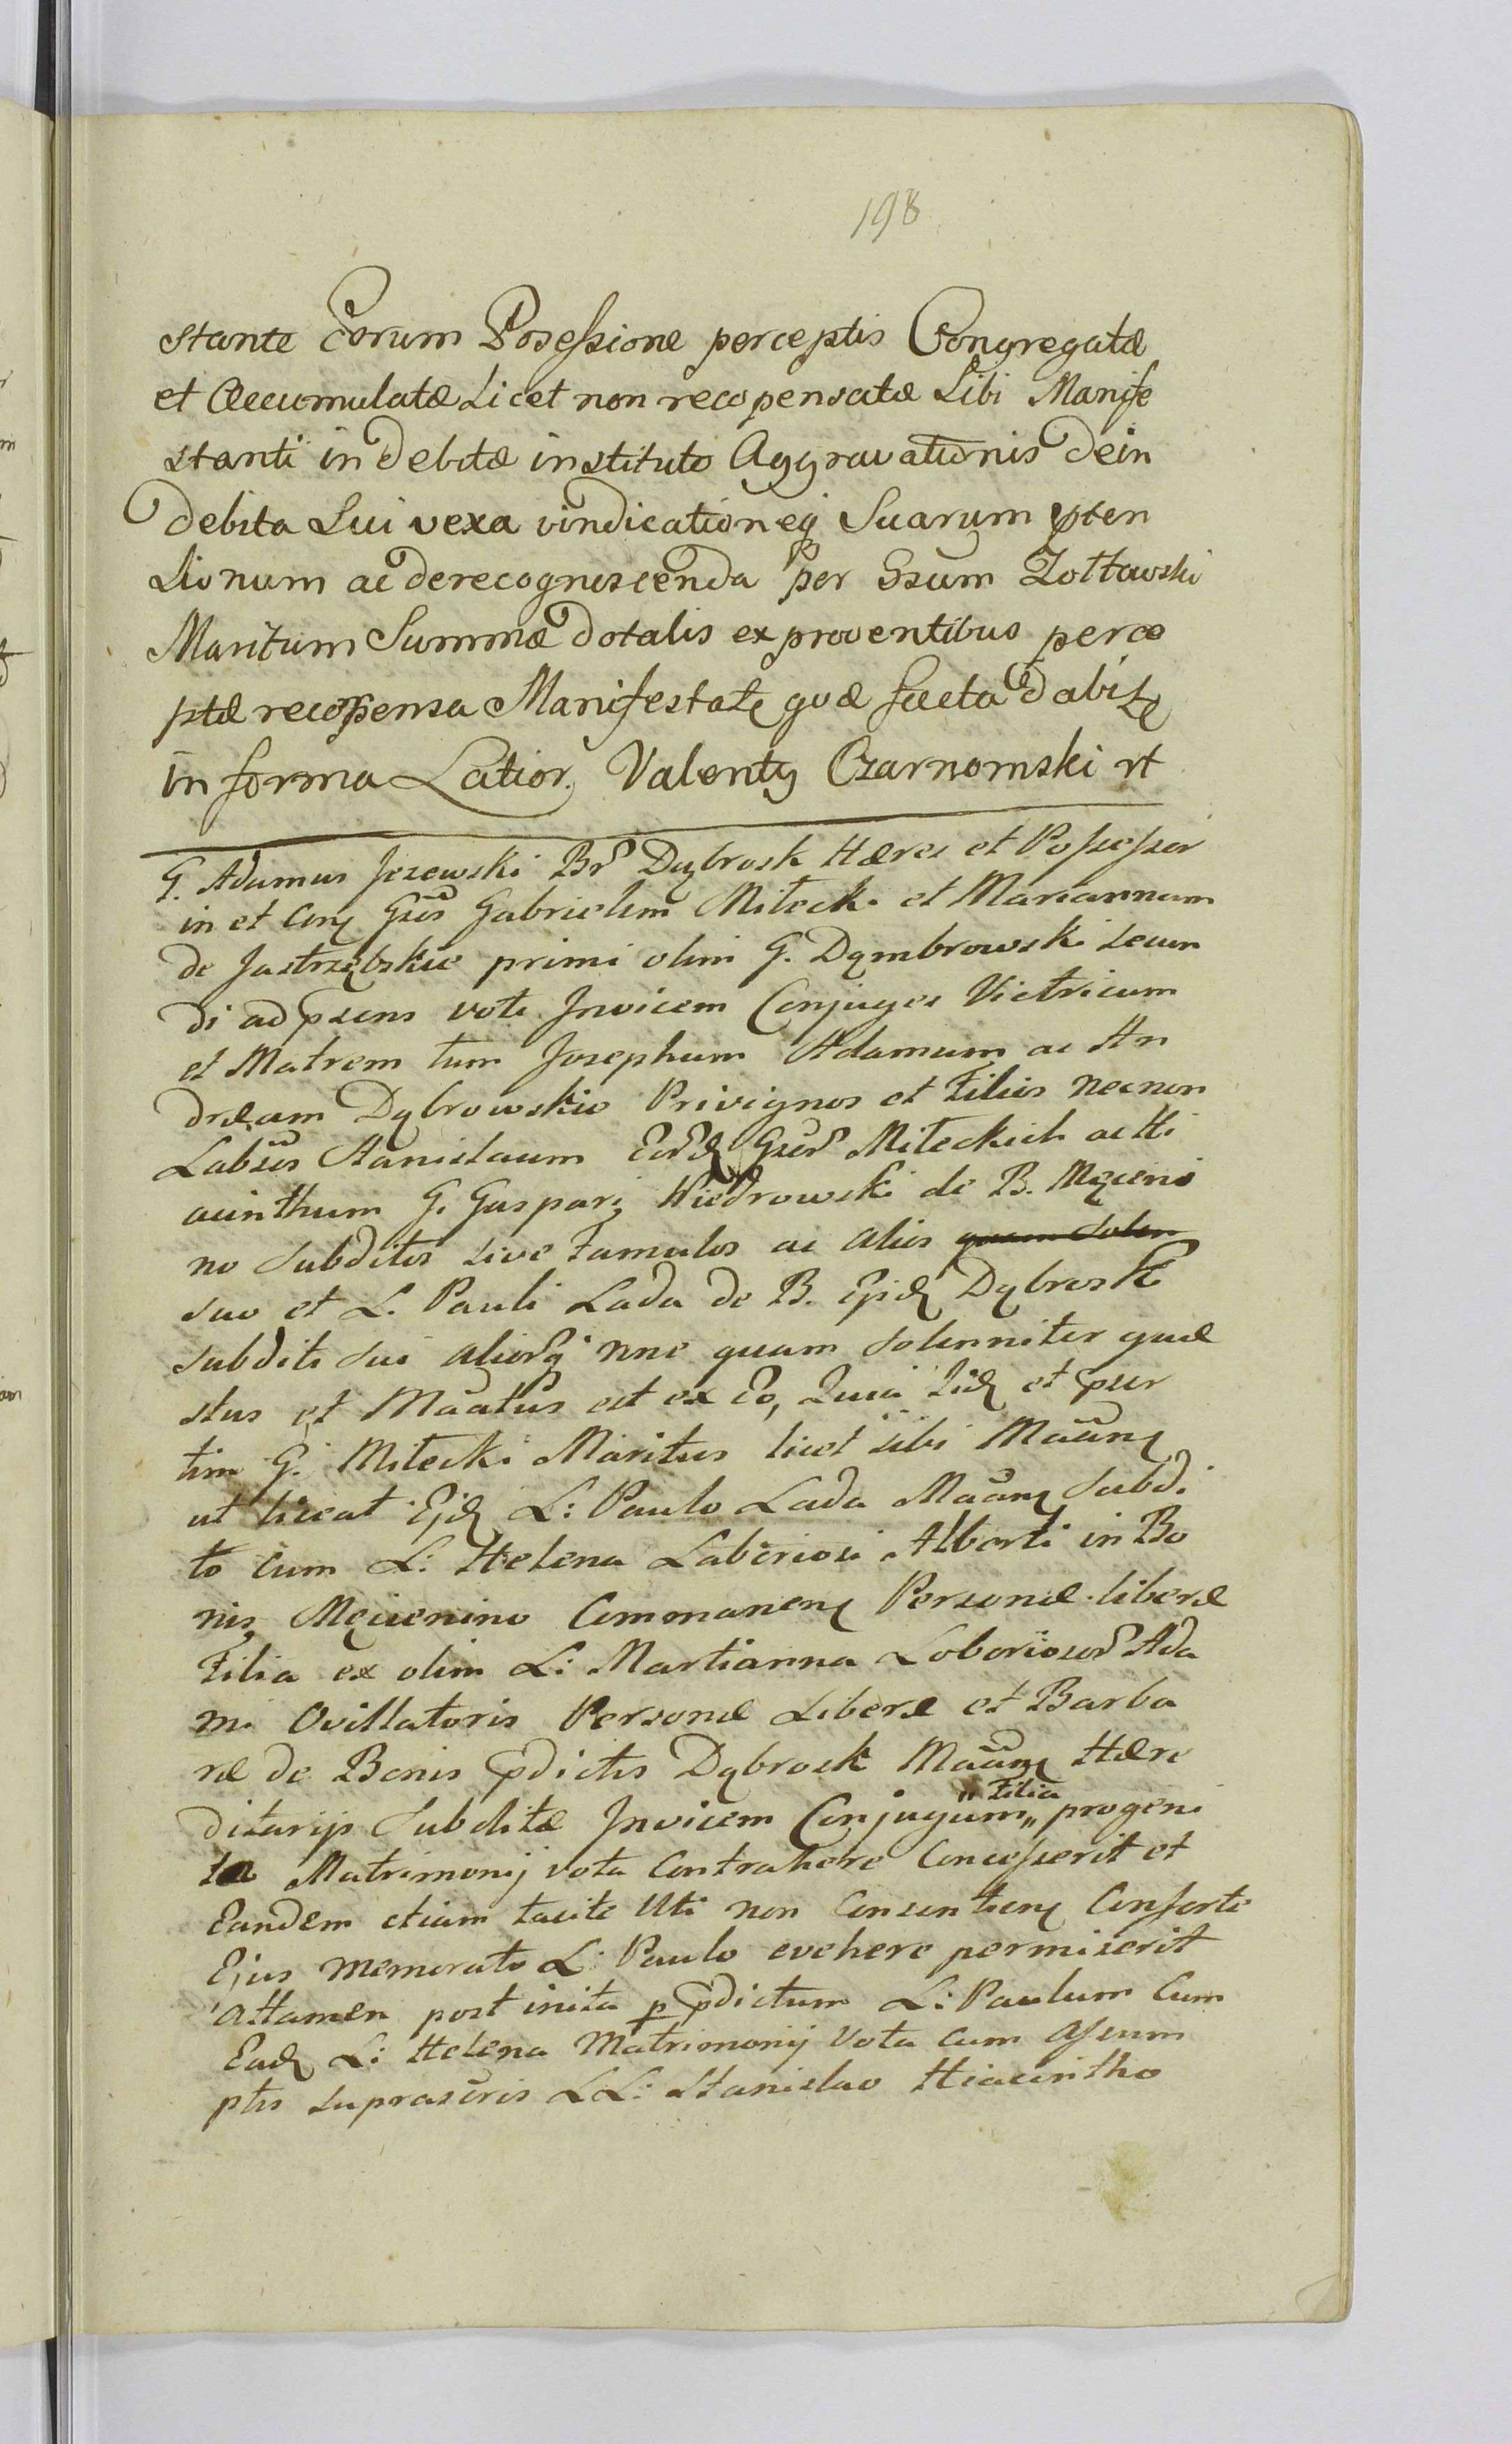 198
stante Eorum Posessione perceptis Congregatæ
et Accumulatæ Licet non recopensatæ Sibi Manife
stanti in Debitæ instituto Aggravationis Dein
Debita Sui vexa vindicationeq Suarum pten
sionum ac de recognoscenda per Gsum Zołtowski
Maritum Summæ dotalis ex proventibus perce
ptæ recopensa Manifestatę quæ facta dabitę
in forma Latior. Valenty Czarnomski rt
G. Adamus Jezewski Br Dąbrosk Hæres et Possessor
in et Conę Gsos Gabrielem Miłecki et Mariannam
de Jastrzębskie primi olim G. Dąmbrowski secun
di ad psens voti Invicem Conjuges Victricum
et Matrem tum Josephum Adamum ac An
dræam Dąbrowskie Privignos et Filios necnon
Labsos Stanislaum Eord Gsor Miłeckich ac Hi
acinthum G. Gaspari Wiedrowski de B. Męceni
no subditos sive Famulos ac alios quam solen
suo et L. Pauli Lada de B. Ejsd Dąbrosk
subditi sui aliorq nne quam solenniter quæ
stus et Maatus est ex Eo, Quia Iid et pser
tim G. Miłecki Maritus licet sibi Maanę
ut liceat Ejd L: Paulo Lada Maanę subdi
to cum L: Helena Laboriosi Alberti in Bo
nis Męcenino Commanenę Personæ liberæ
Filia ex olim L: Martianna Loboriosor Ada
mi Ovillatoris Personæ Liberæ et Barba
ræ de Bonis pdictis Dąbrosk Maanę Hære
ditarijs Subditæ Invicem Conjugum „ Filia „ progeni
ta Matrimonij vota Contrahere Concesserit et
Eandem etiam tacite Uti non Consentienę Consorte
Ejus memorato L: Paulo evehere permiserit
Attamen post inita p pdictum L: Paulum Cum
Ead L: Helena Matrimonij Vota cum assum
ptis suprascris LL: Stanislao Hiacintho